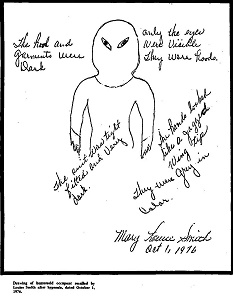 The Hood and
garments were
Dark
only the eyes
Were Visible
They Wore Hoods.
The suit was tight
fitted and Very
Dark.
The hands looked
like a jagged
Wing tip
They were Grey in
Color.
Mary Louise Smith
Oct 1, 1976
Drawing of humanoid occupant recalled by
Louise Smith after hypnosis, dated October 1,
1976.